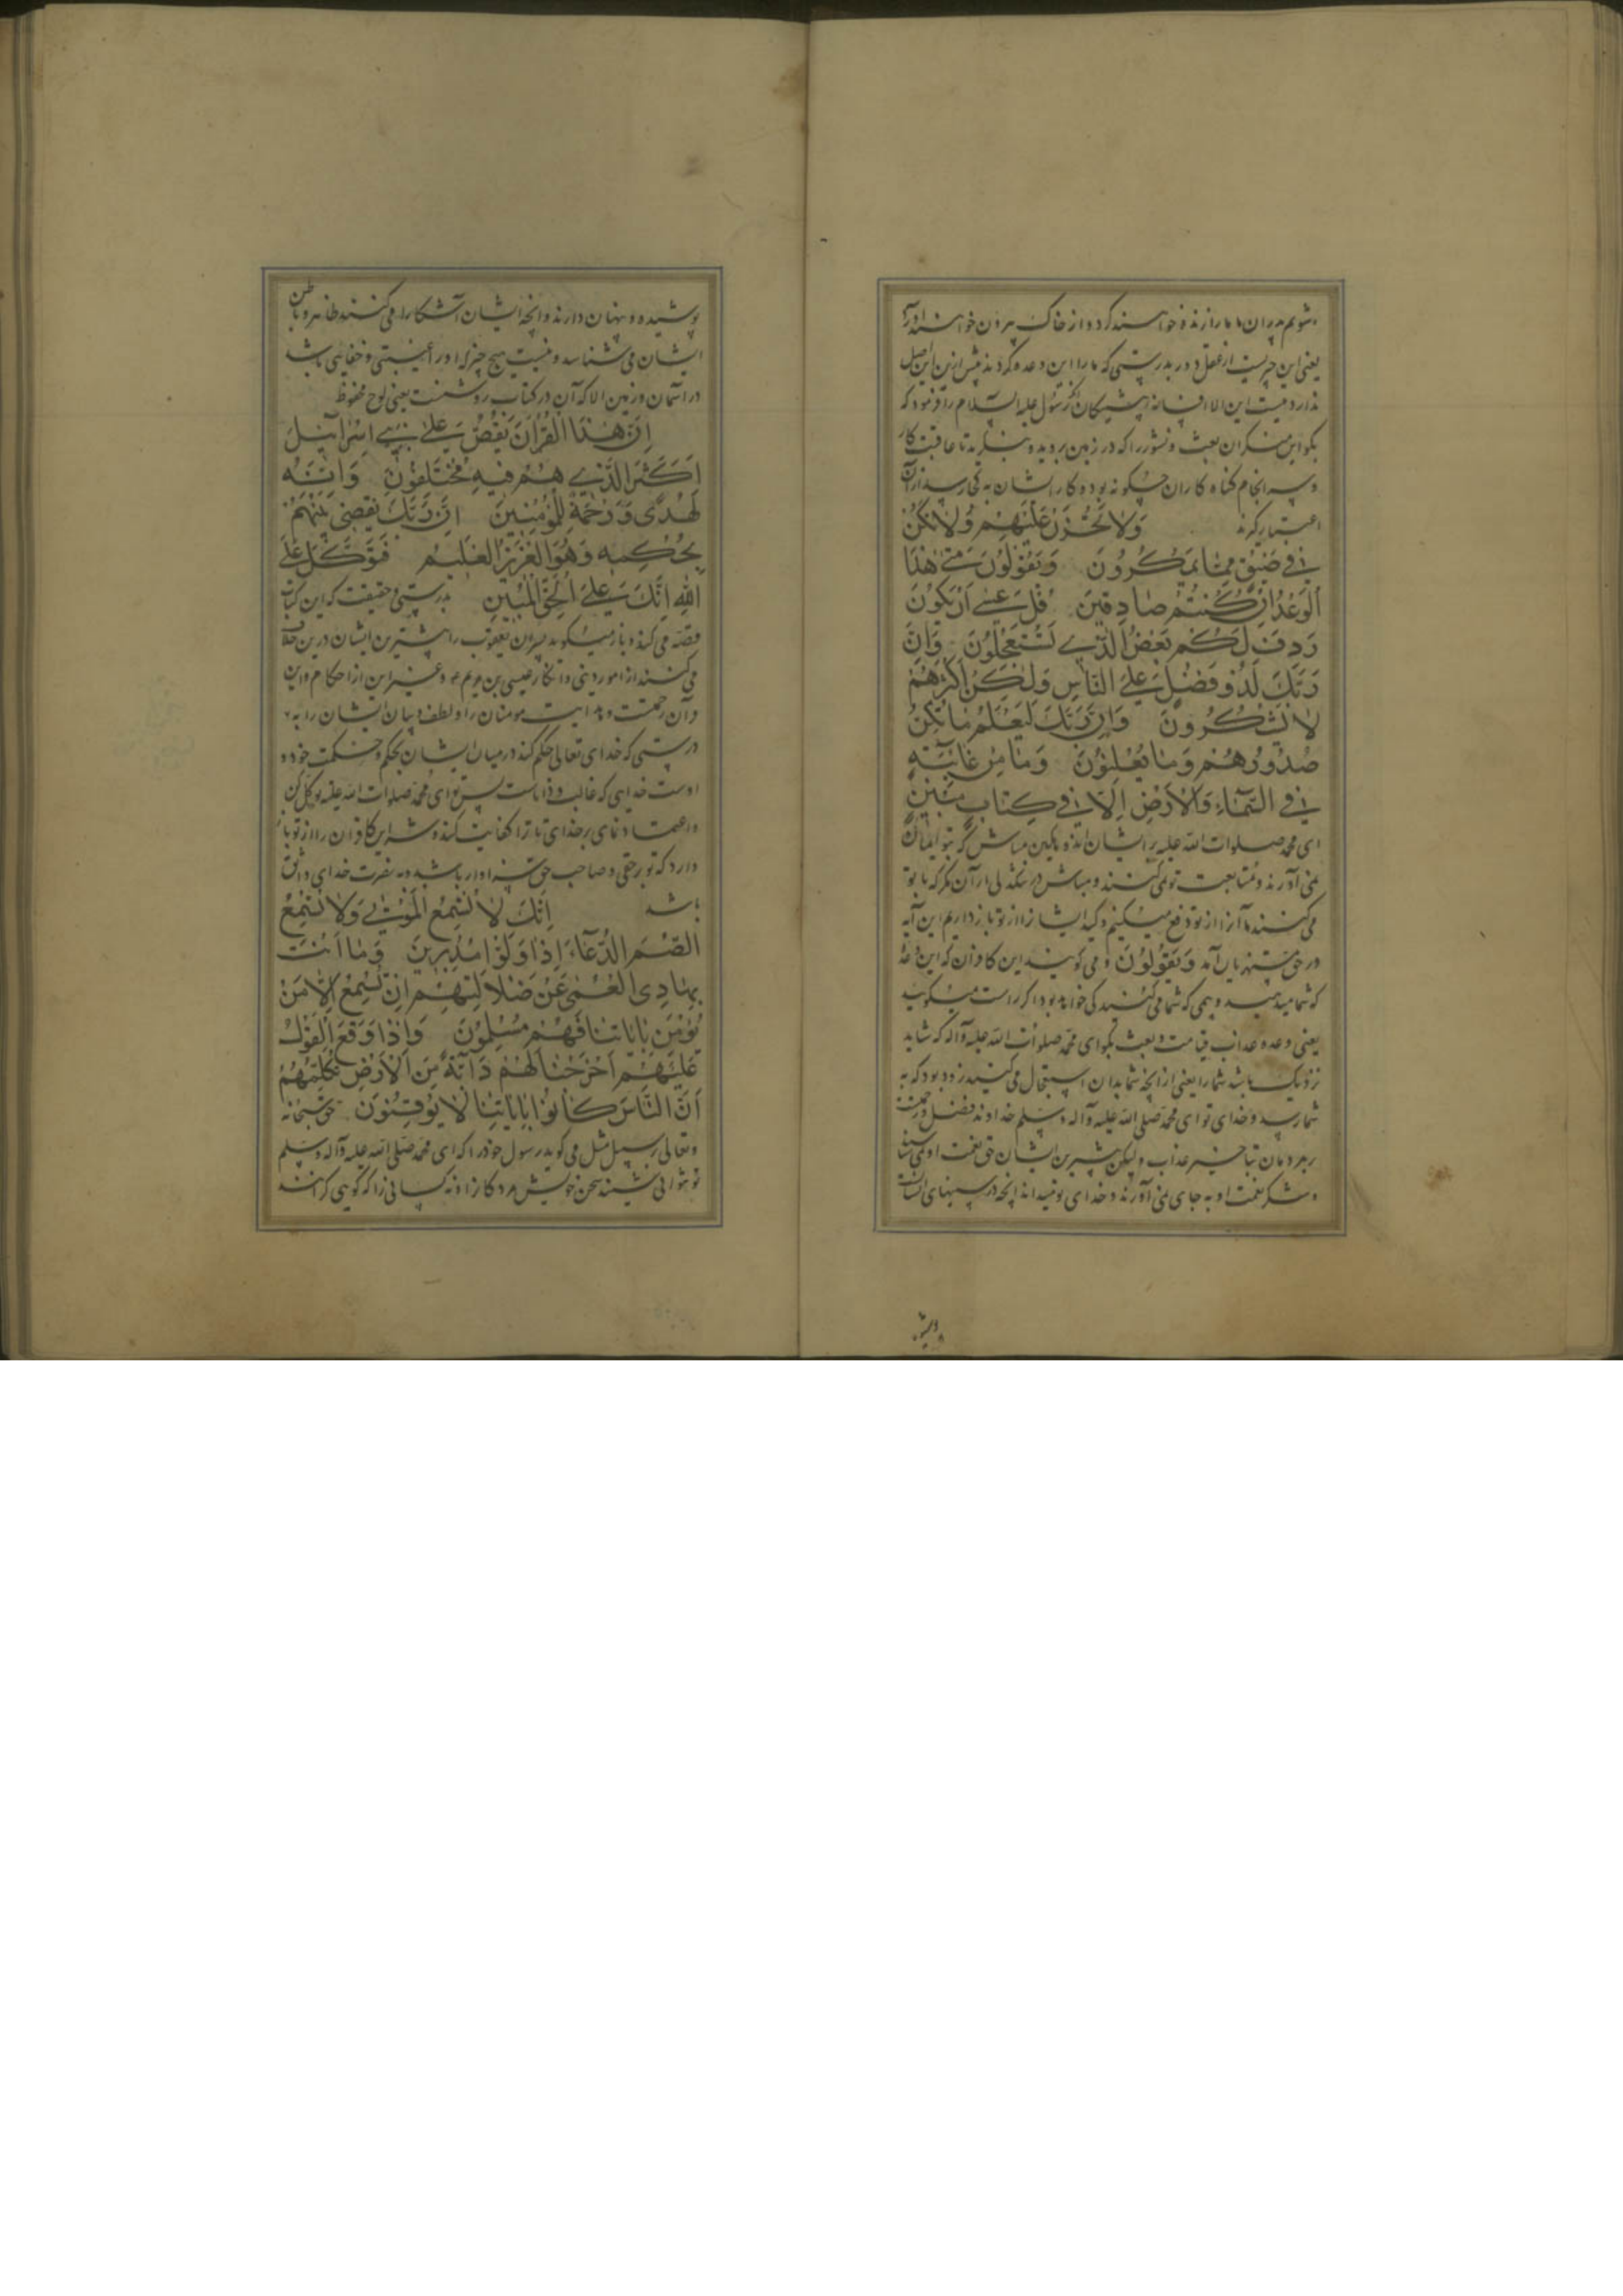 شویم پدران ما ما را زنده خواهند کرد و از خاک بیرون خواهند آورد
یعنی این چیزیست از عقل دور بدرستی که ما را این وعده کردند پیش ازین این اصل
ندارد نیست این الا افسانه پیشینکان رسول علیه السلام را فرمود که
بکو این منکران بعث و نشور را که در زمین بروید و بنگرید تا عاقبت کار
و سرانجام کناه کاران چگونه بود و کار ایشان به کجا رسید از آن
اعتبار گیرند وَلَا تَحْزَنْ عَلَيْهِمْ وَلَا تَكُنْ
فِي ضَيْقٍ مِمَّا يَمْكُرُونَ وَيَقُولُونَ مَتَى هٰذَا
الْوَعْدُ اِنْ كُنْتُمْ صَادِقِينَ قُلْ عَسَى اَنْ يَكُونَ
رَدِفَ لَكُمْ بَعْضُ الَّذِي تَسْتَعْجِلُونَ وَاِنَّ
رَبَّكَ لَذُو فَضْلٍ عَلَى النَّاسِ وَلٰكِنَّ اَكْثَرَهُمْ
لَا يَشْكُرُونَ وَاِنَّ رَبَّكَ لَيَعْلَمُ مَا تُكِنُّ
صُدُورُهُمْ وَمَا يُعْلِنُونَ وَمَا مِنْ غَائِبَةٍ
فِي السَّمَاءِ وَالْاَرْضِ اِلَّا فِي كِتَابٍ مُبِينٍ
ای محمد صلوات الله علیه بر ایشان اندوهکین مباش که بتو ایمان
نمی آورند و متابعت تو نمی کنند و مباش در تنگدلی از آن مکر که با تو
می کنند ما آنرا از تو دفع میکنیم و کید ایشانرا از تو باز داریم این آیه
در حق مستهزیان آمد وَيَقُولُونَ و می گویند این کافران که این وعده
که شما میدهید و بیمی که شما می کنید کی خواهد بود اکر راست میکویید
یعنی وعده عذاب قیامت و بعث بکو ای محمد صلوات الله علیه وآله که شاید
نزدیک باشد شما را یعنی از آنچه شما بدان استعجال می کنید زود بود که به
شما رسد و خدای تو ای محمد صلی الله علیه وآله وسلم خداوند فضل و رحمتست
بر مردمان بتاخیر عذاب ولیکن بیشترین ایشان حق نعمت او نمی شناسند
و شکر نعمت او به جای نمی آورند و خدای تو میداند آنچه در سینهای ایشانست
پوشیده
پوشیده و پنهان دارند و آنچه ایشان آشکارا می کنند ظاهر و باطن
ایشان می شناسد و نیست هیچ چیز که او را غیبتی و خفایی باشد
در آسمان و زمین الا که آن در کتاب روشنست یعنی لوح محفوظ
اِنَّ هٰذَا الْقُرْاٰنَ يَقُصُّ عَلَى بَنِي اِسْرَائِيلَ
اَكْثَرَ الَّذِي هُمْ فِيهِ مُخْتَلِفُونَ وَاِنَّهُ
لَهُدًى وَرَحْمَةٌ لِلْمُؤْمِنِينَ اِنَّ رَبَّكَ يَقْضِي بَيْنَهُمْ
بِحُكْمِهِ وَهُوَ الْعَزِيزُ الْعَلِيمُ فَتَوَكَّلْ عَلَى
اللهِ اِنَّكَ عَلَى الْحَقِّ الْمُبِينِ بدرستی و حقیقت که این کتاب
قصه می کند و باز میکوید پسران یعقوب را بیشترین ایشان درین خلاف
می کنند از امور دینی و انکار عیسی بن مریم و غیر این از احکام و این
قرآن رحمتست و هدایت مومنان را و لطف و بیان ایشان را به
درستی که خدای تعالی حکم کند در میان ایشان بحکم و حکمت خود و
اوست خدایی که غالب و داناست پس تو ای محمد صلوات الله علیه توکل کن
و اعتماد نمای بر خدای تا ترا کفایت کند و شر این کافران را از تو باز
دارد که تو بر حقی و صاحب حق سزاوار باشد به نصرت خدای واثق
باشد اِنَّكَ لَا تُسْمِعُ الْمَوْتٰى وَلَا تُسْمِعُ
الصُّمَّ الدُّعَاءَ اِذَا وَلَّوْا مُدْبِرِينَ وَمَا اَنْتَ
بِهَادِي الْعُمْيِ عَنْ ضَلَالَتِهِمْ اِنْ تُسْمِعُ اِلَّا مَنْ
يُؤْمِنُ بِاٰيَاتِنَا فَهُمْ مُسْلِمُونَ وَاِذَا وَقَعَ الْقَوْلُ
عَلَيْهِمْ اَخْرَجْنَا لَهُمْ دَابَّةً مِنَ الْاَرْضِ تُكَلِّمُهُمْ
اَنَّ النَّاسَ كَانُوا بِاٰيَاتِنَا لَا يُوقِنُونَ حق سبحانه
وتعالی بر سبیل مثل می کوید رسول خود را که ای محمد صلی الله علیه وآله وسلم
تو نتوانی شنید سخن خویش مردکانرا و نه کسانی را که کویی کرانند